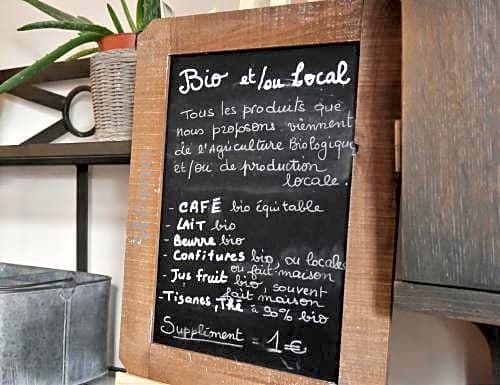 Bio et/ou Local
Tous les produits que
nous proposons viennent
de l'Agriculture Biologique
et/ou de production
locale.
- CAFÉ bio équitable
- LAIT bio
- Beurre bio
- Confitures bio, ou locales
ou fait-maison
- Jus fruit bio, souvent
fait maison
- Tisanes, thé à 90% bio
Supplément = 1€